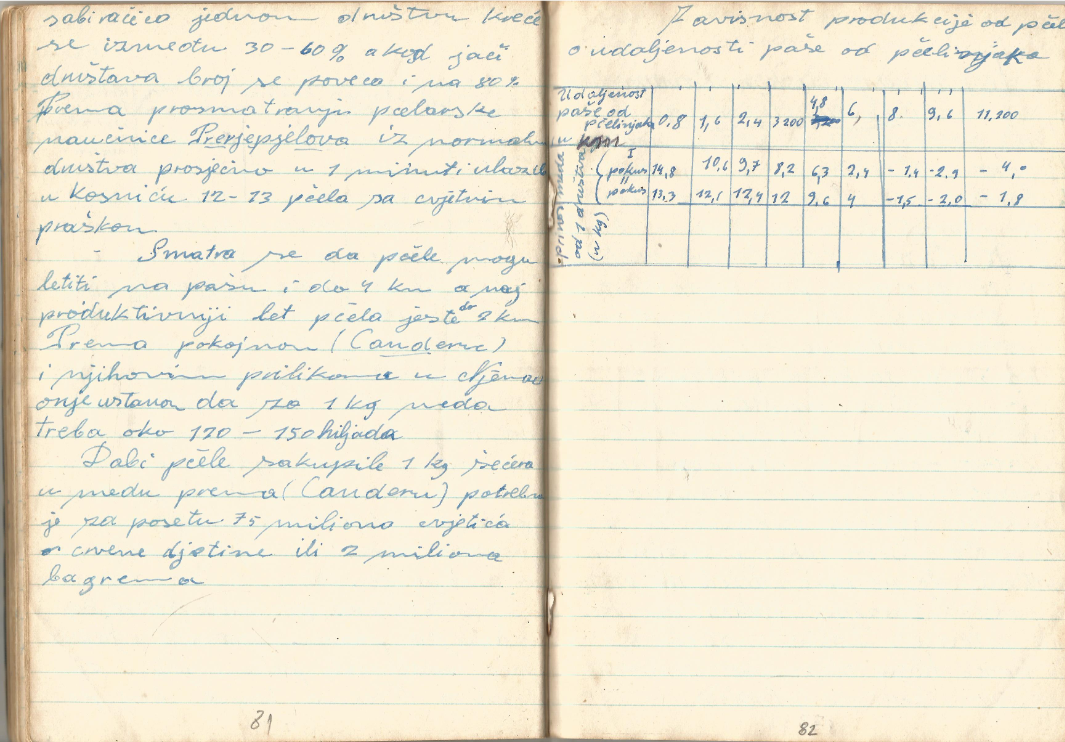 sabiračica jednom društvu kreće
se izmeđtu 30-60% a kod jači
društava broj se poveca i na 80%
Prema prosmatranju pčelarske
naučinice Prerjepjelova iz normaln
društva prosječno u 1 minuti ulazi
u kosnicu 12-13 pčela sa cvjetnim
praškom
- Smatra se da pčele mogu
letiti na pašu i do 4 km a naj
produktivniji let pčela jeste do 2 km
Prema pokojnom (Canderu)
i njihovim prilikama u Njemač
onje ustanom da za 1 kg meda
treba oko 120 - 150 hiljada
Dabi pčele sakupile 1 kg šećera
u medu prema (Canderu) potrebn
je za posetu 75 miliona cvjetića
crvene djetine ili 2 miliona
bagrema
81
Zavisnost produkcije od pčel
o udaljenosti paše od pčelinjaka
Udaljenost
paše od
pčelinjaka
u km
0,8 1,6 2,4 3200 4,8 6, 8. 9,6 11,200
prinos meda
od 1 društva
(u kg)
I
pokus 14,8 10,6 9,7 8,2 6,3 2,4 -1,4 -2,9 -4,0
II
pokus 13,3 12,1 12,4 12 9,6 4 -1,5 -2,0 -1,8
82